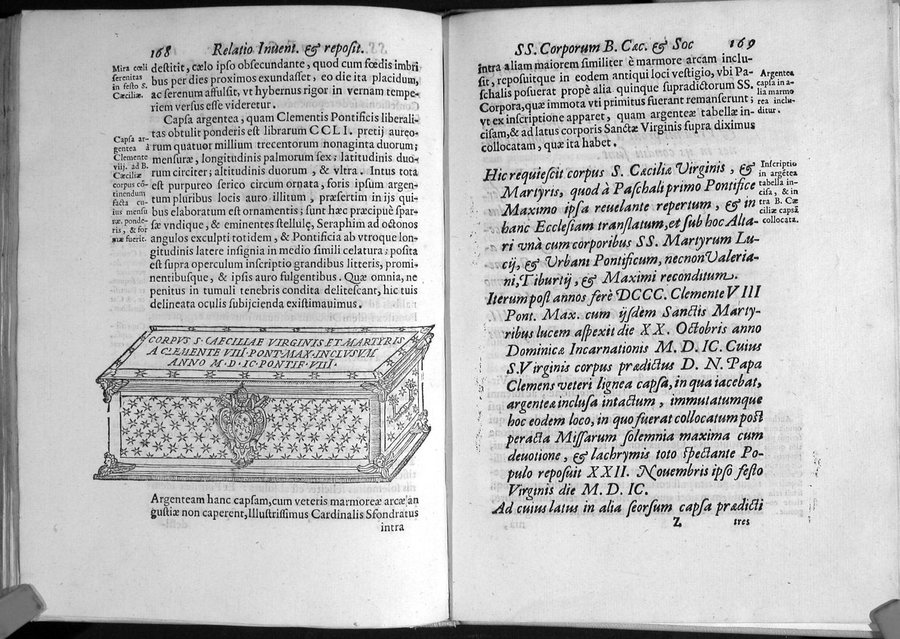 168 Relatio Inuent. & reposit.
Mira cœli
serenitas
in festo S.
Cæciliæ.
destitit, cælo ipso obsecundante, quod cum fœdis imbri
bus per dies proximos exundasset, eo die ita placidum,
ac serenum affulsit, vt hybernus rigor in vernam tempe-
riem versus esse videretur.
Capsa ar-
gentea à
Clemente
viij. ad B.
Cæciliæ
corpus cō-
tinendum
facta cu-
ius mensu
ræ, ponde-
ris, & for-
mæ fuerit.
Capsa argentea, quam Clementis Pontificis liberali-
tas obtulit ponderis est librarum CCLI. pretij aureo-
rum quatuor millium trecentorum nonaginta duorum;
mensuræ, longitudinis palmorum sex: latitudinis duo-
rum circiter; altitudinis duorum, & vltra. Intus tota
est purpureo serico circum ornata, foris ipsum argen-
tum pluribus locis auro illitum, præsertim in ijs qui-
bus elaboratum est ornamentis; sunt hæc præcipuè spar-
sæ vndique, & eminentes stellulę, Seraphim ad octonos
angulos exculpti totidem, & Pontificia ab vtroque lon-
gitudinis latere insignia in medio simili cęlatura: posita
est supra operculum inscriptio grandibus litteris, promi-
nentibusque, & ipsis auro fulgentibus. Quæ omnia, ne
penitus in tumuli tenebris condita delitescant, hic tuis
delineata oculis subijcienda existimauimus.
CORPVS S. CAECILIAE VIRGINIS ET MARTYRIS
A CLEMENTE VIII. PONT. MAX. INCLVSVM
ANNO M·D·IC·PONTIF·VIII·
Argenteam hanc capsam, cum veteris marmoreæ arcæ an
gustiæ non caperent, Illustrissimus Cardinalis Sfondratus
intra
SS. Corporum B. Cæc. & Soc 169
intra aliam maiorem similiter è marmore arcam inclu-
sit, reposuitque in eodem antiqui loci vestigio, vbi Pa-
schalis posuerat propè alia quinque supradictorum SS.
Corpora, quæ immota vti primitus fuerant remanserunt;
vt ex inscriptione apparet, quam argenteæ tabellæ in-
cisam, & ad latus corporis Sanctæ Virginis supra diximus
collocatam, quæ ita habet.
Argentea
capsa in a-
lia marmo
rea inclu-
ditur.
Hic requiescit corpus S. Cæciliæ Virginis, &
Martyris, quod à Paschali primo Pontifice
Maximo ipsa reuelante repertum, & in
hanc Ecclesiam translatum, et sub hoc Alta-
ri vnà cum corporibus SS. Martyrum Lu-
cij, & Vrbani Pontificum, necnon Valeria-
ni, Tiburtij, & Maximi reconditum.
Inscriptio
in argētea
tabella in-
cisa, & in
tra B. Cæ
ciliæ capsā
collocata.
Iterum post annos ferè DCCC. Clemente VIII
Pont. Max. cum ijsdem Sanctis Marty-
ribus lucem aspexit die XX. Octobris anno
Dominicæ Incarnationis M. D. IC. Cuius
S. Virginis corpus prædictus D. N. Papa
Clemens veteri lignea capsa, in qua iacebat,
argenteæ inclusa intactum, immutatumque
hoc eodem loco, in quo fuerat collocatum post
peracta Missarum solemnia maxima cum
deuotione, & lachrymis toto spectante Po-
pulo reposuit XXII. Nouembris ipso festo
Virginis die M. D. IC.
Ad cuius latus in alia seorsum capsa prædicti
Z tres